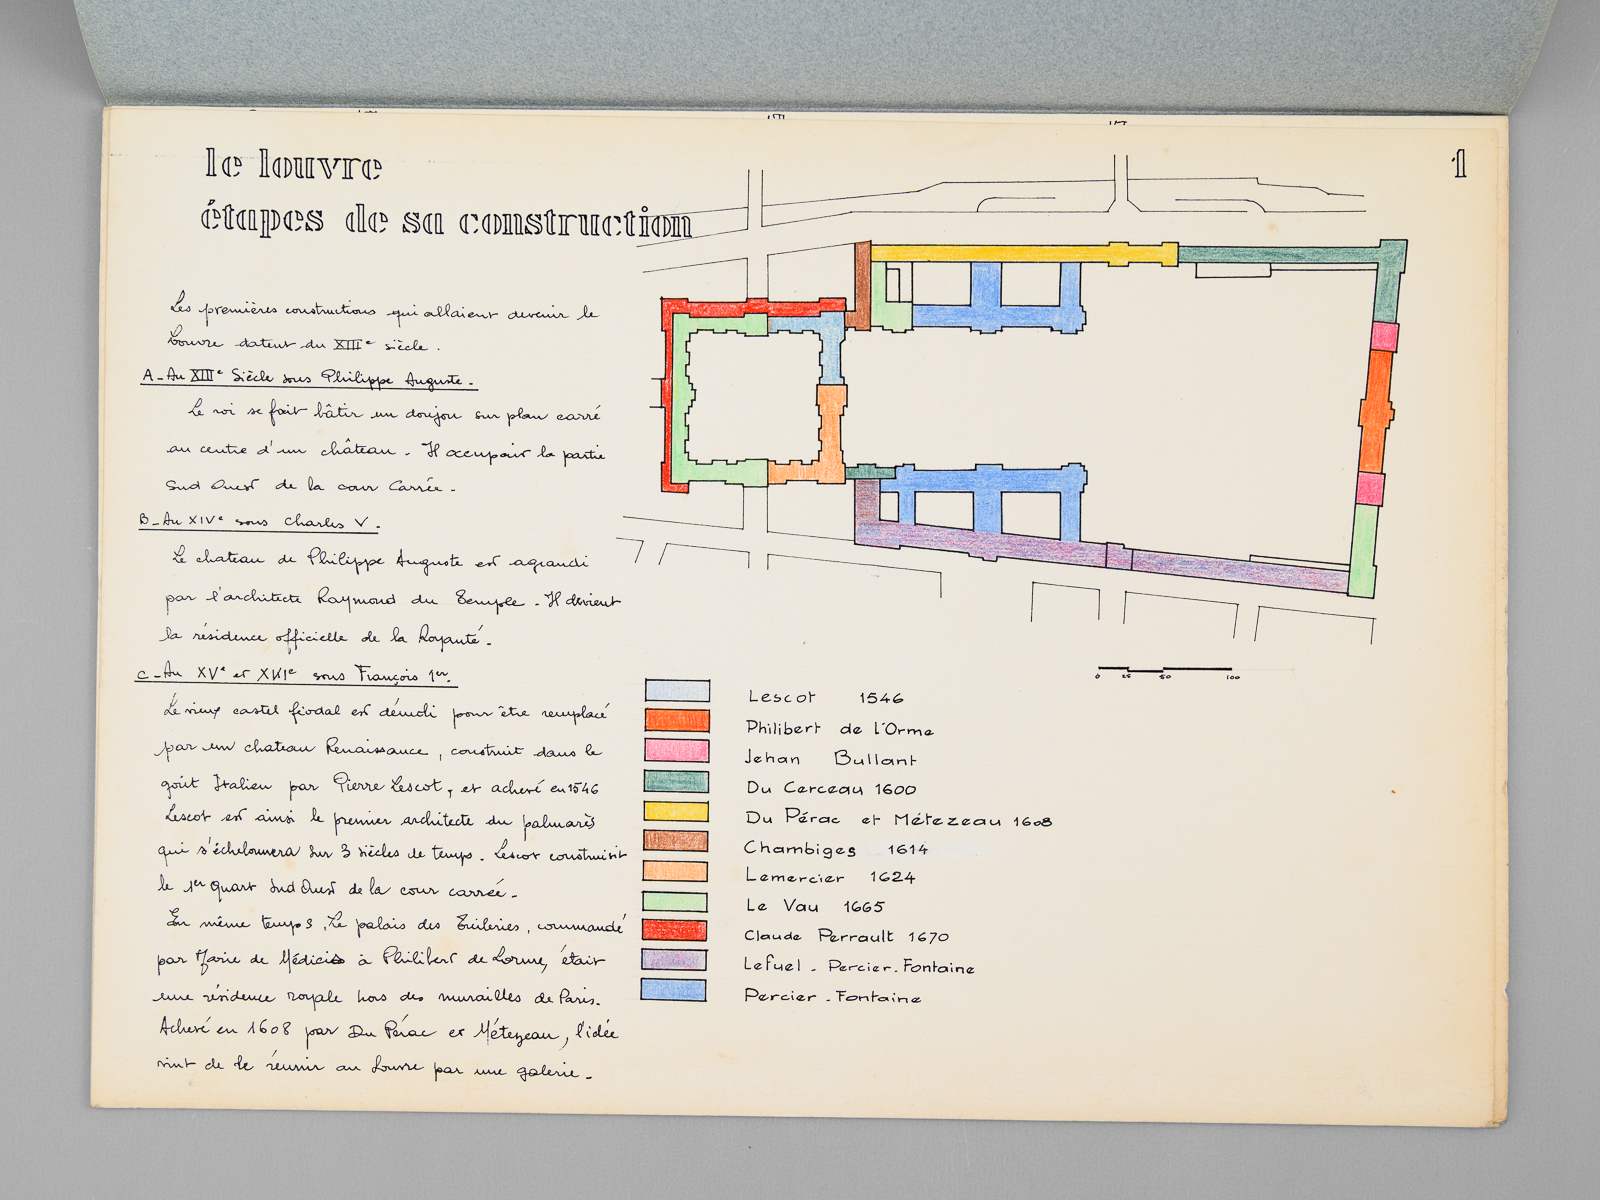 le louvre
1
étapes de sa construction
Les premières constructions qui allaient devenir le
Louvre datent du XIIIe siècle.
A - Au XIIIe Siècle sous Philippe Auguste.
Le roi se fait bâtir un donjon sur plan carré
au centre d'un château. Il occupait la partie
Sud Ouest de la cour Carrée.
B - Au XIVe sous Charles V.
Le chateau de Philippe Auguste est agrandi
par l'architecte Raymond du Temple. Il devient
la résidence officielle de la Royauté.
C - Au XVe et XVIe sous François 1er.
Le vieux castel féodal est démoli pour être remplacé
par un chateau Renaissance, construit dans le
goût Italien par Pierre Lescot, et achevé en 1546
Lescot est ainsi le premier architecte du palmarès
qui s'échelonnera sur 3 siècles de temps. Lescot construisit
le 1er quart Sud Ouest de la cour carrée.
En même temps, Le palais des Tuileries, commandé
par Marie de Médicis à Philibert de Lorme, était
une résidence royale hors des murailles de Paris.
Achevé en 1608 par Du Pérac et Métezeau, l'idée
vint de le réunir au Louvre par une galerie.
0 25 50 100
Lescot 1546
Philibert de l'Orme
Jehan Bullant
Du Cerceau 1600
Du Pérac et Métezeau 1608
Chambiges 1614
Lemercier 1624
Le Vau 1665
Claude Perrault 1670
Lefuel - Percier - Fontaine
Percier - Fontaine